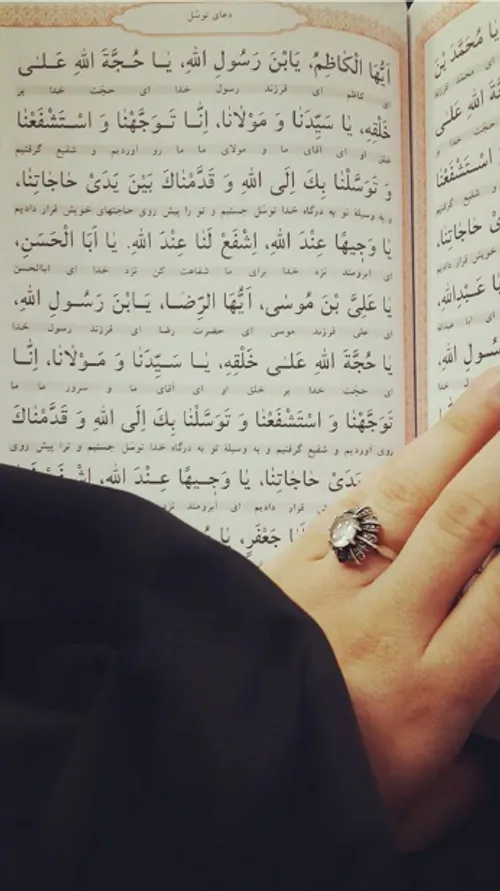 دعای توسل
اَیُّهَا الْکاظِمُ، یَابْنَ رَسُولِ اللهِ، یا حُجَّةَ اللهِ عَلی
ای کاظم ای فرزند رسول خدا ای حجّت خدا بر
خَلْقِهِ، یا سَیِّدَنا وَ مَوْلانا، اِنّا تَوَجَّهْنا وَ اسْتَشْفَعْنا
خلق او ای آقای ما و مولای ما ما رو آوردیم و شفیع گرفتیم
وَ تَوَسَّلْنا بِکَ اِلَی اللهِ وَ قَدَّمْناکَ بَیْنَ یَدَیْ حاجاتِنا،
و به وسیلهٔ تو به درگاه خدا توسّل جستیم و تو را پیش روی حاجتهای خویش قرار دادیم
یا وَجیهًا عِنْدَ اللهِ، اِشْفَعْ لَنا عِنْدَ اللهِ. یا اَبَا الْحَسَنِ،
ای آبرومند نزد خدا برای ما شفاعت کن نزد خدا ای اباالحسن
یا عَلِیَّ بْنَ مُوسی، اَیُّهَا الرِّضا، یَابْنَ رَسُولِ اللهِ،
ای علی فرزند موسی ای حضرت رضا ای فرزند رسول خدا
یا حُجَّةَ اللهِ عَلی خَلْقِهِ، یا سَیِّدَنا وَ مَوْلانا، اِنّا
ای حجّت خدا بر خلق او ای آقای ما و سرور ما ما
تَوَجَّهْنا وَ اسْتَشْفَعْنا وَ تَوَسَّلْنا بِکَ اِلَی اللهِ وَ قَدَّمْناکَ
روی آوردیم و شفیع گرفتیم و به وسیلهٔ تو به درگاه خدا توسّل جستیم و ترا پیش روی
یَدَیْ حاجاتِنا، یا وَجیهًا عِنْدَ اللهِ، اِشْفَعْ لَنا
قرار دادیم ای آبرومند نزد
جَعْفَرٍ، یا
یا مُحَمَّدَ بْنَ
ای محمد فرزند
اللهِ عَلی
حجّت خدا بر
اسْتَشْفَعْنا
و شفیع گرفتیم
حاجاتِنا،
خویش قرار دادیم
یا عَبْدِاللهِ،
ای ابا عبدالله
رَسُولِ اللهِ،
رسول خدا